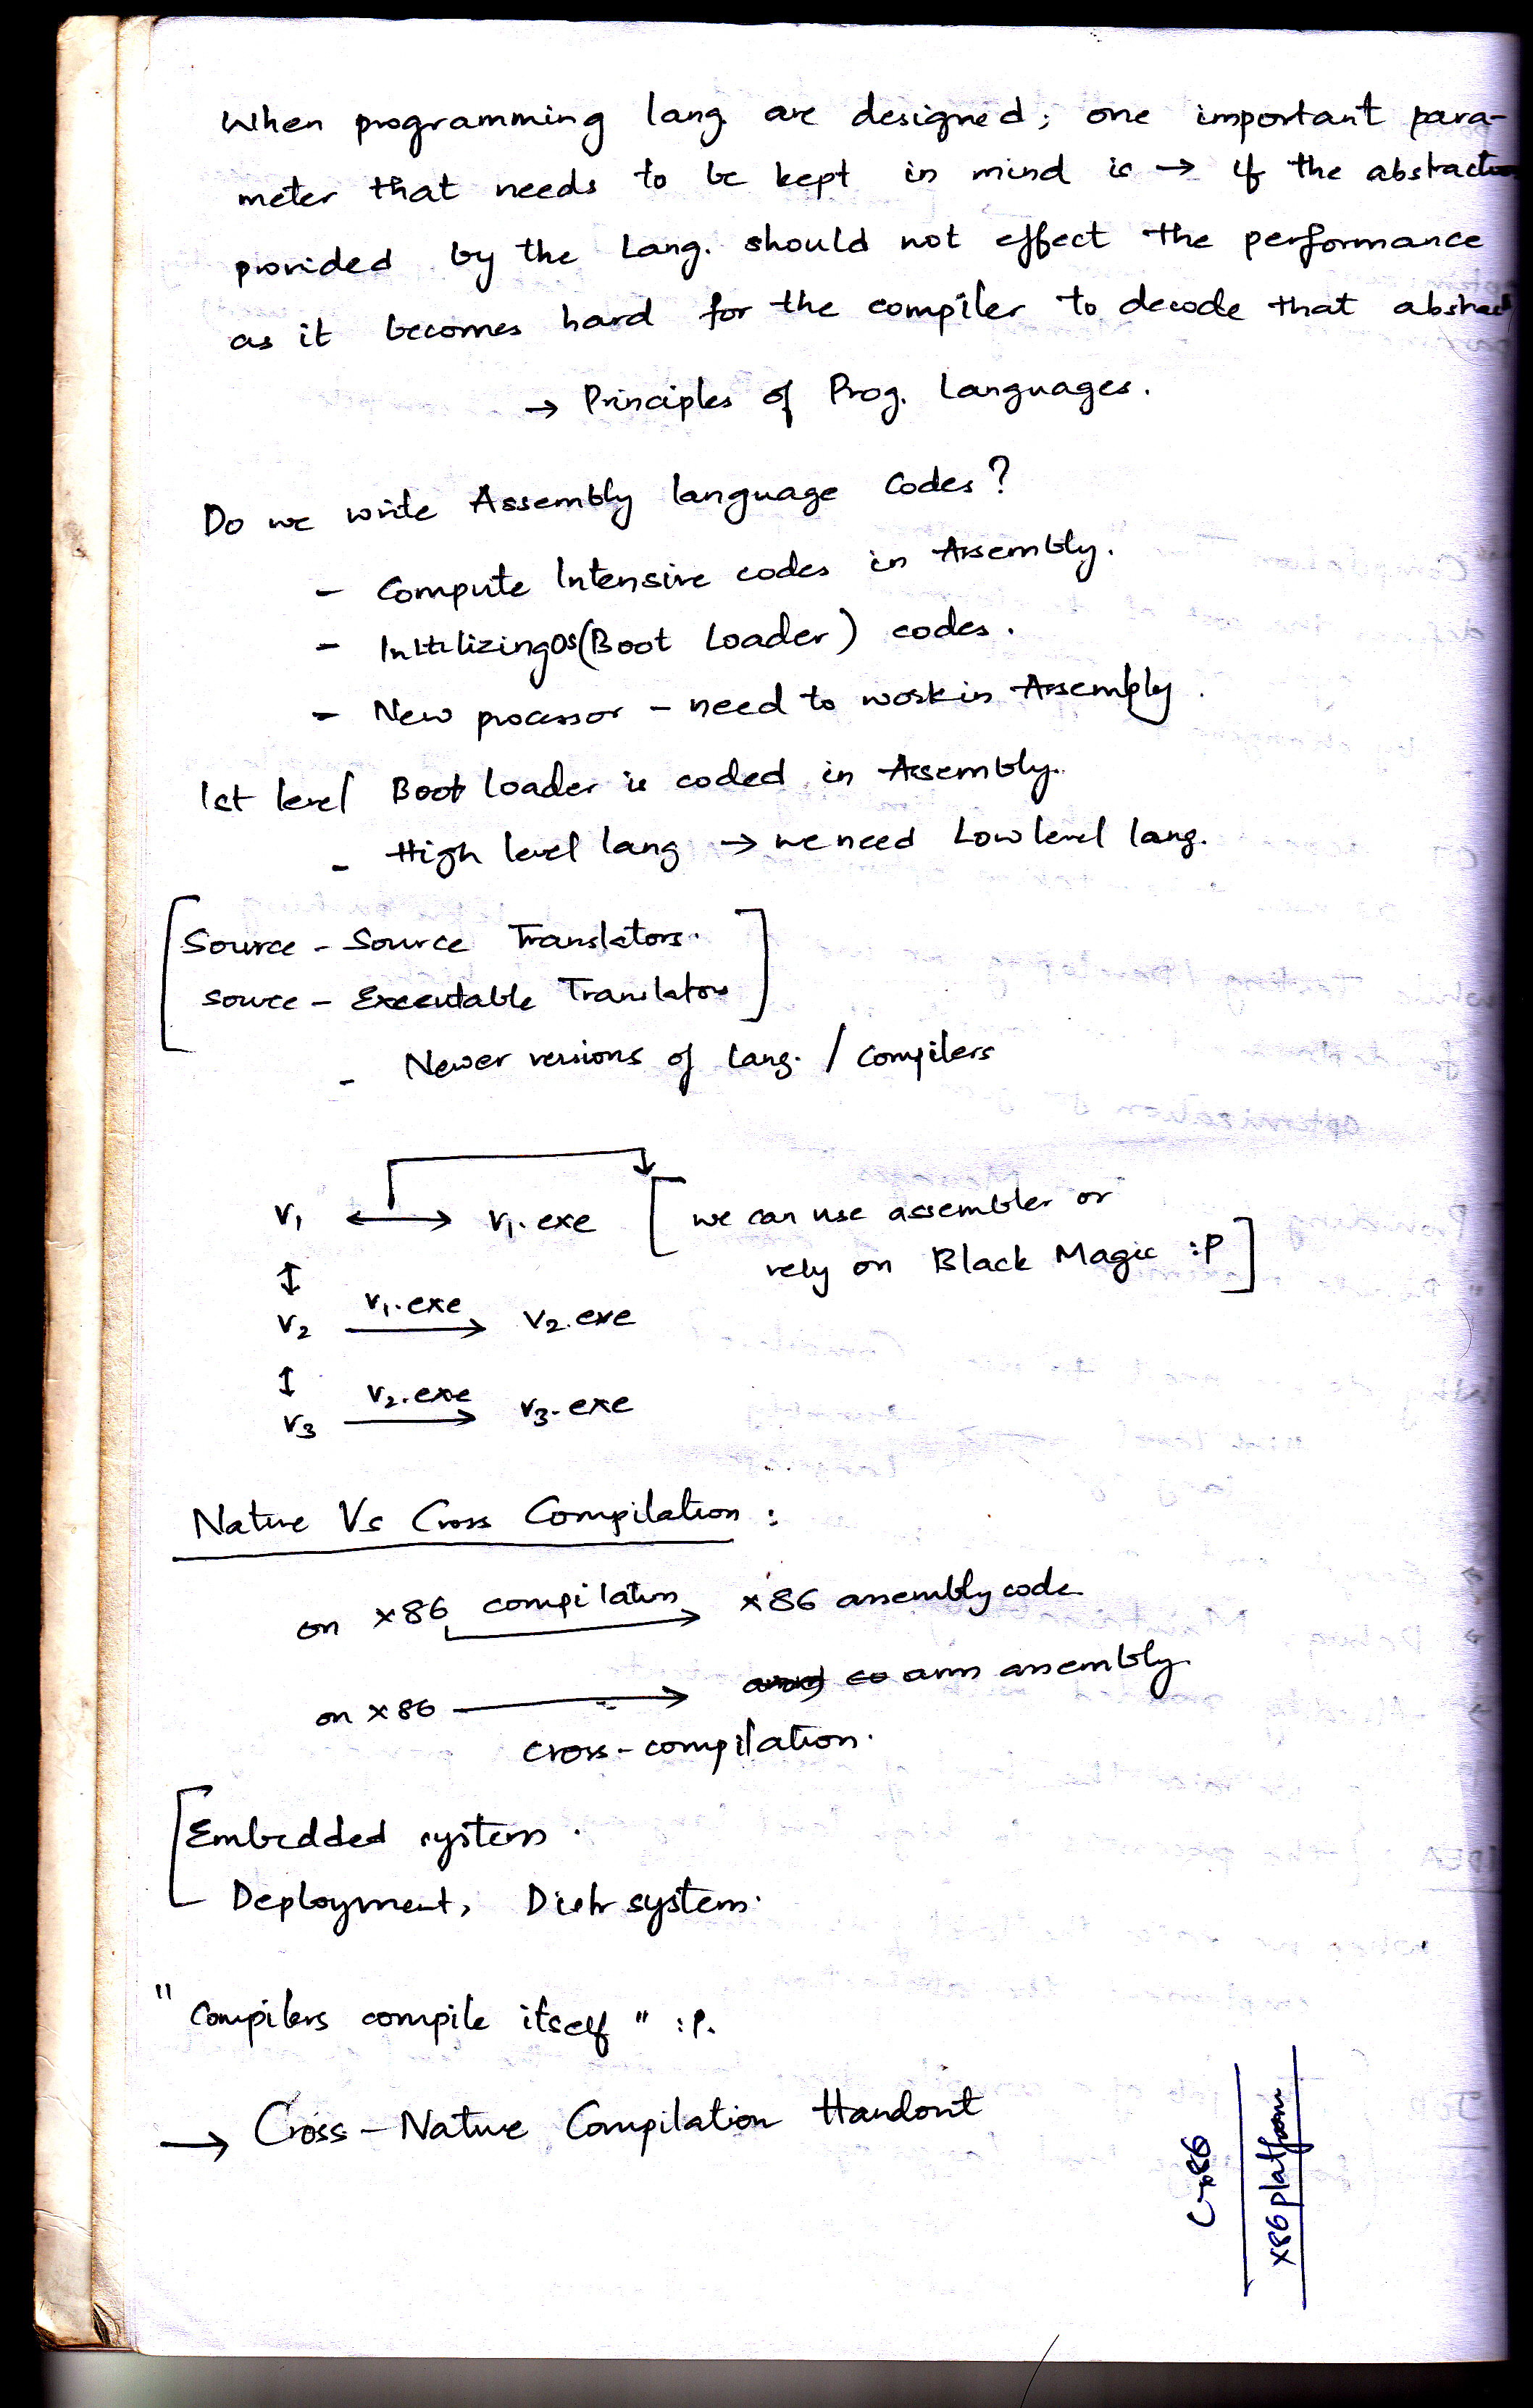 When programming lang are designed; one important para-
meter that needs to be kept in mind is → if the abstraction
provided by the Lang. should not effect the performance
as it becomes hard for the compiler to decode that abstract
→ Principles of Prog. Languages.
Do we write Assembly language Codes?
- Compute Intensive codes in Assembly.
- Initilizing OS (Boot Loader) codes.
- New processor - need to work in Assembly.
1st level Boot loader is coded in Assembly.
- High level lang → we need Low level lang.
Source - Source Translators.
Source - Executable Translators
- Newer versions of Lang. / Compilers
V1 ↔ V1.exe [we can use assembler or
rely on Black Magic :P]
↕
V2 V1.exe → V2.exe
↕
V3 V2.exe → V3.exe
Native Vs Cross Compilation :
on x86 compilation → x86 assembly code
on x86 → arm assembly.
Cross-compilation.
Embedded system.
Deployment, Distr system.
"Compilers compile itself" :P.
→ Cross-Native Compilation Handout
C→x86
x86 platform